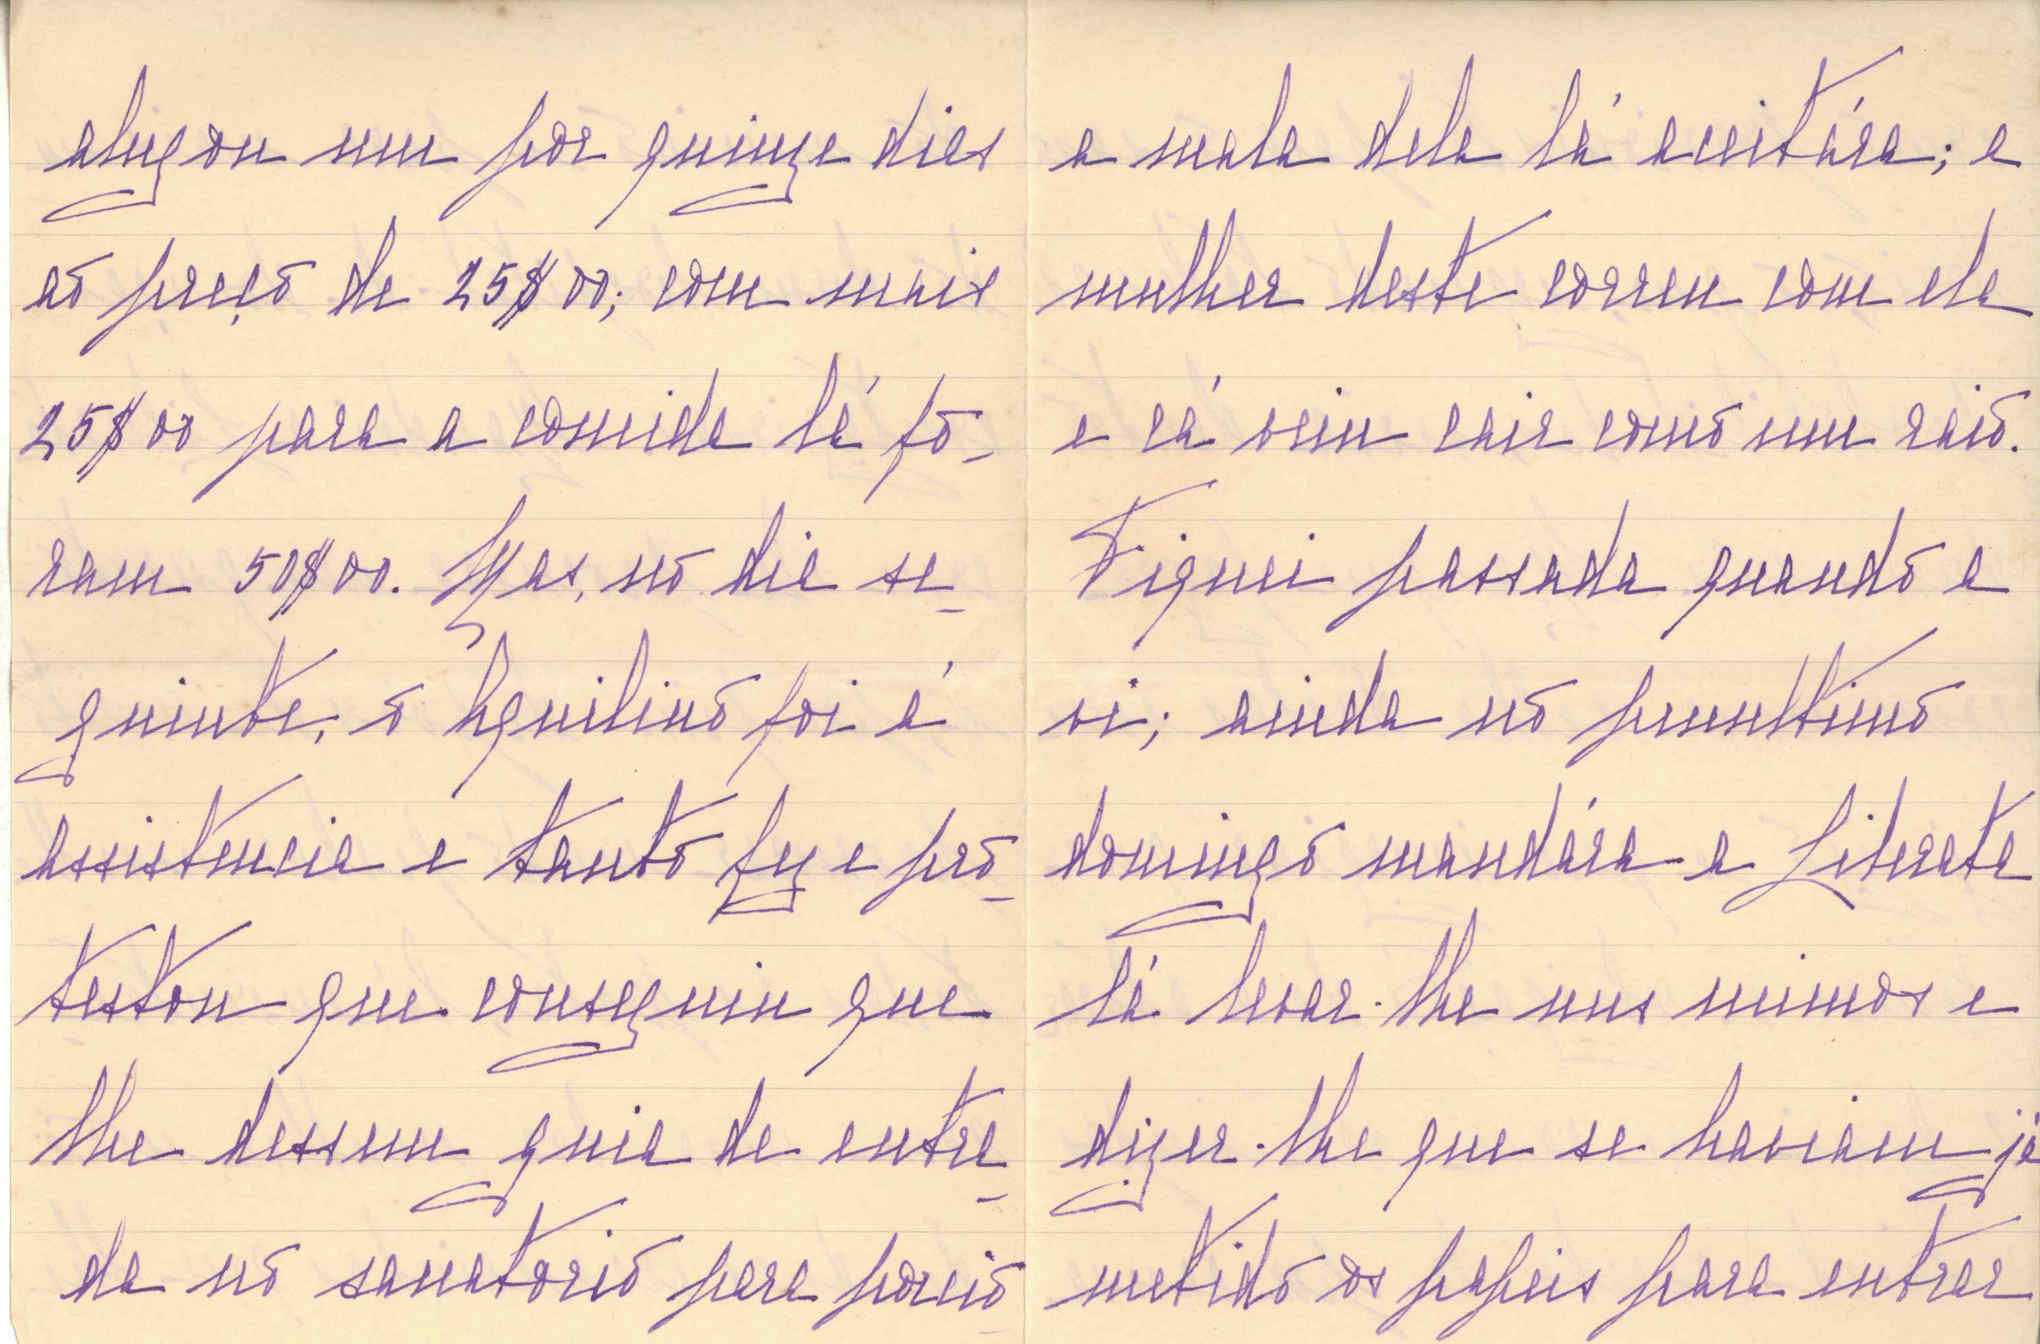 alugou um por quinze dias
aó preçó de 25$00; com mais
25$00 para a comida lá fo-
ram 50$00. Mas, nó dia se-
guinte, ó Aquilinó foi á
assistencia e tantó fez e pro-
testou que conseguiu que
lhe dessem guia de entra-
da nó sanatorió para
a mala dela lá aceitára; a
mulher deste correu com ela
e cá veiu cair comó um raió.
Fiquei passada quandó a
vi; ainda nó penultimó
domingó mandára a Liberata
lá levar-lhe uns mimos e
dizer-lhe que se haviam já
metidó os papeis para entrar